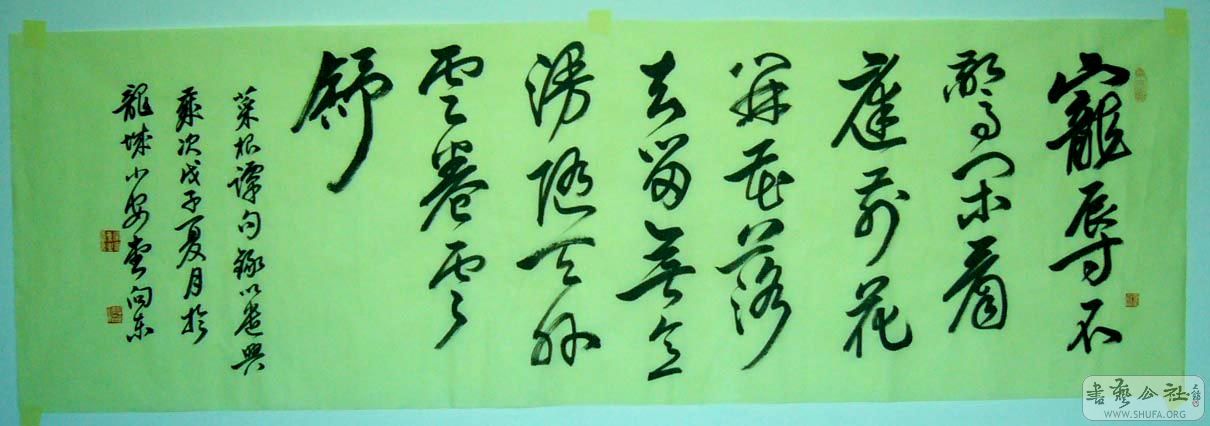 寵辱不
驚閑看
庭前花
開花落
去留無意
漫隨天外
雲卷雲
舒
菜根譚句錄以遣興
歲次戊子夏月於
龍城小安堂向東
書藝公社
WWW.SHUFA.ORG